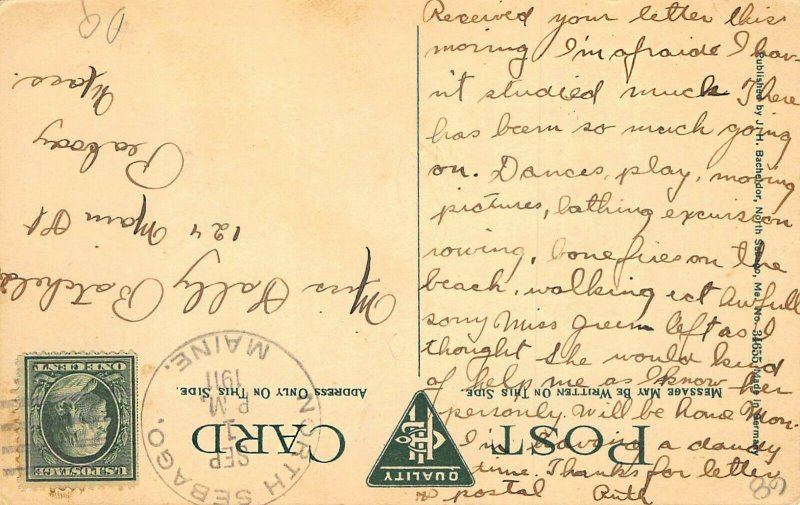 Received your letter this
moring I'm afraide I hav-
n't studied much There
has been so much going
on. Dances, play, moving
pictures, bathing excursion
rowing, bonefires on the
beach, walking ect Awfull
sorry Miss Green left as I
thought she would kind
of help me as I know her
personly. Will be home Mon.
I'm having a dandy
time. Thanks for letter
postal Ruth
POST CARD
MESSAGE MAY BE WRITTEN ON THIS SIDE.
ADDRESS ONLY ON THIS SIDE.
QUALITY
Published by J. H. Bacheldor, North Sebago, Me. No. 31655 Made in Germany
NORTH SEBAGO, MAINE.
SEP
1
P M
1911
U.S. POSTAGE
ONE CENT
Miss Sally Batchelder
124 Main St
Peabody
Mass.